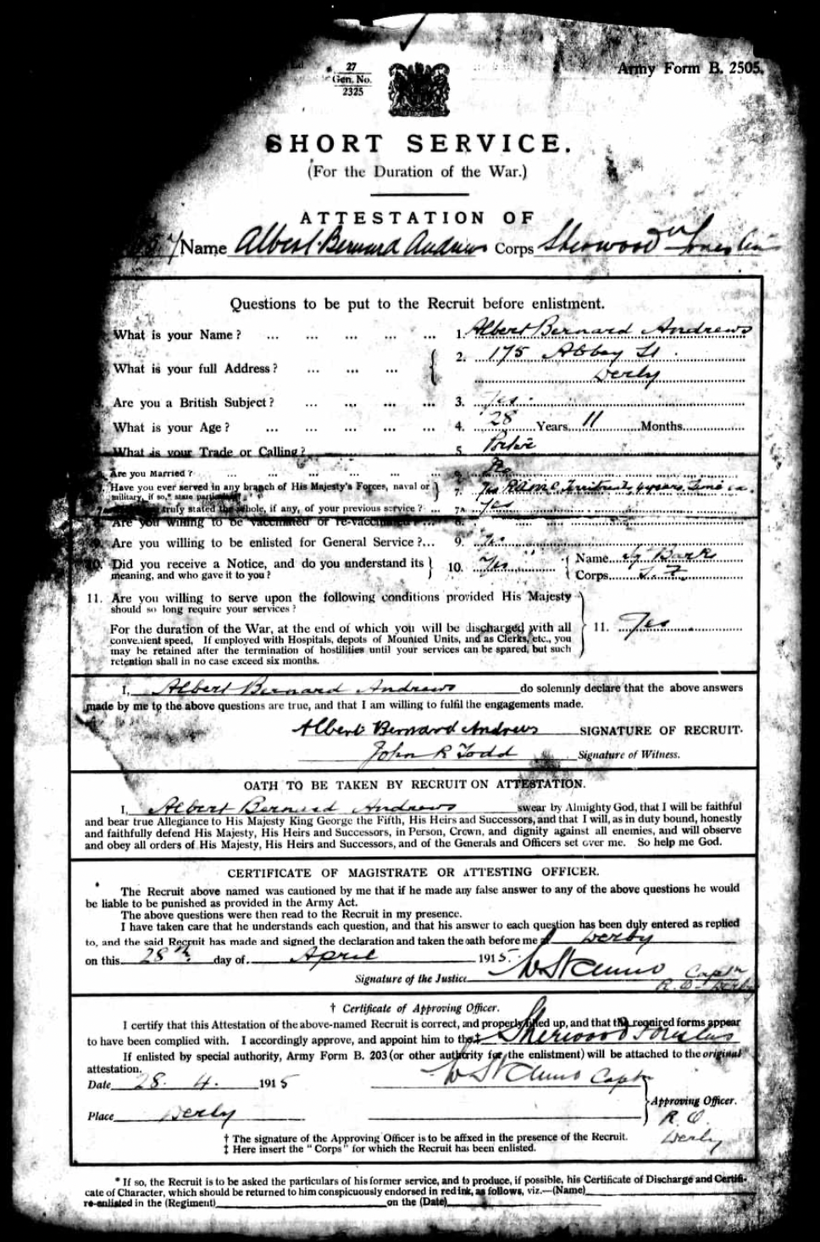 27
Gen. No.
2325
Army Form B. 2505.
SHORT SERVICE.
(For the Duration of the War.)
ATTESTATION OF
Name Albert Bernard Andrews Corps Sherwood
Questions to be put to the Recruit before enlistment.
What is your Name? ... ... ... ... 1. Albert Bernard Andrews
What is your full Address? ... ... ... 2. 175 Abbey St.
Derby
Are you a British Subject? ... ... ... 3. Yes
What is your Age? ... ... ... ... 4. 28 Years 11 Months.
What is your Trade or Calling? 5.
Are you Married? ... ... ... ... ...
Have you ever served in any branch of His Majesty's Forces, naval or 7. Yes R.A.M.C. 4 years
military, if so,* state particulars?
truly stated the whole, if any, of your previous service? ... 7A. Yes
Are you willing to be vaccinated or re-vaccinated 8.
9. Are you willing to be enlisted for General Service?... 9. Yes
10. Did you receive a Notice, and do you understand its 10. Yes Name
meaning, and who gave it to you? Corps
11. Are you willing to serve upon the following conditions provided His Majesty
should so long require your services?
For the duration of the War, at the end of which you will be discharged with all 11. Yes
convenient speed. If employed with Hospitals, depots of Mounted Units, and as Clerks, etc., you
may be retained after the termination of hostilities until your services can be spared, but such
retention shall in no case exceed six months.
I, Albert Bernard Andrews do solemnly declare that the above answers
made by me to the above questions are true, and that I am willing to fulfil the engagements made.
Albert Bernard Andrews SIGNATURE OF RECRUIT.
John R Todd Signature of Witness.
OATH TO BE TAKEN BY RECRUIT ON ATTESTATION.
I, Albert Bernard Andrews swear by Almighty God, that I will be faithful
and bear true Allegiance to His Majesty King George the Fifth, His Heirs and Successors, and that I will, as in duty bound, honestly
and faithfully defend His Majesty, His Heirs and Successors, in Person, Crown, and dignity against all enemies, and will observe
and obey all orders of His Majesty, His Heirs and Successors, and of the Generals and Officers set over me. So help me God.
CERTIFICATE OF MAGISTRATE OR ATTESTING OFFICER.
The Recruit above named was cautioned by me that if he made any false answer to any of the above questions he would
be liable to be punished as provided in the Army Act.
The above questions were then read to the Recruit in my presence.
I have taken care that he understands each question, and that his answer to each question has been duly entered as replied
to, and the said Recruit has made and signed the declaration and taken the oath before me Derby
on this 28th day of April 1915.
Signature of the Justice Captn
R.O. Derby
† Certificate of Approving Officer.
I certify that this Attestation of the above-named Recruit is correct, and properly filled up, and that the required forms appear
to have been complied with. I accordingly approve, and appoint him to the‡ Sherwood
If enlisted by special authority, Army Form B. 203 (or other authority for the enlistment) will be attached to the original
attestation.
Date 28. 4. 1915 Captn
Approving Officer.
Place Derby R.O
Derby
† The signature of the Approving Officer is to be affixed in the presence of the Recruit.
‡ Here insert the "Corps" for which the Recruit has been enlisted.
* If so, the Recruit is to be asked the particulars of his former service, and to produce, if possible, his Certificate of Discharge and Certifi-
cate of Character, which should be returned to him conspicuously endorsed in red ink, as follows, viz.—(Name)
re-enlisted in the (Regiment) on the (Date)